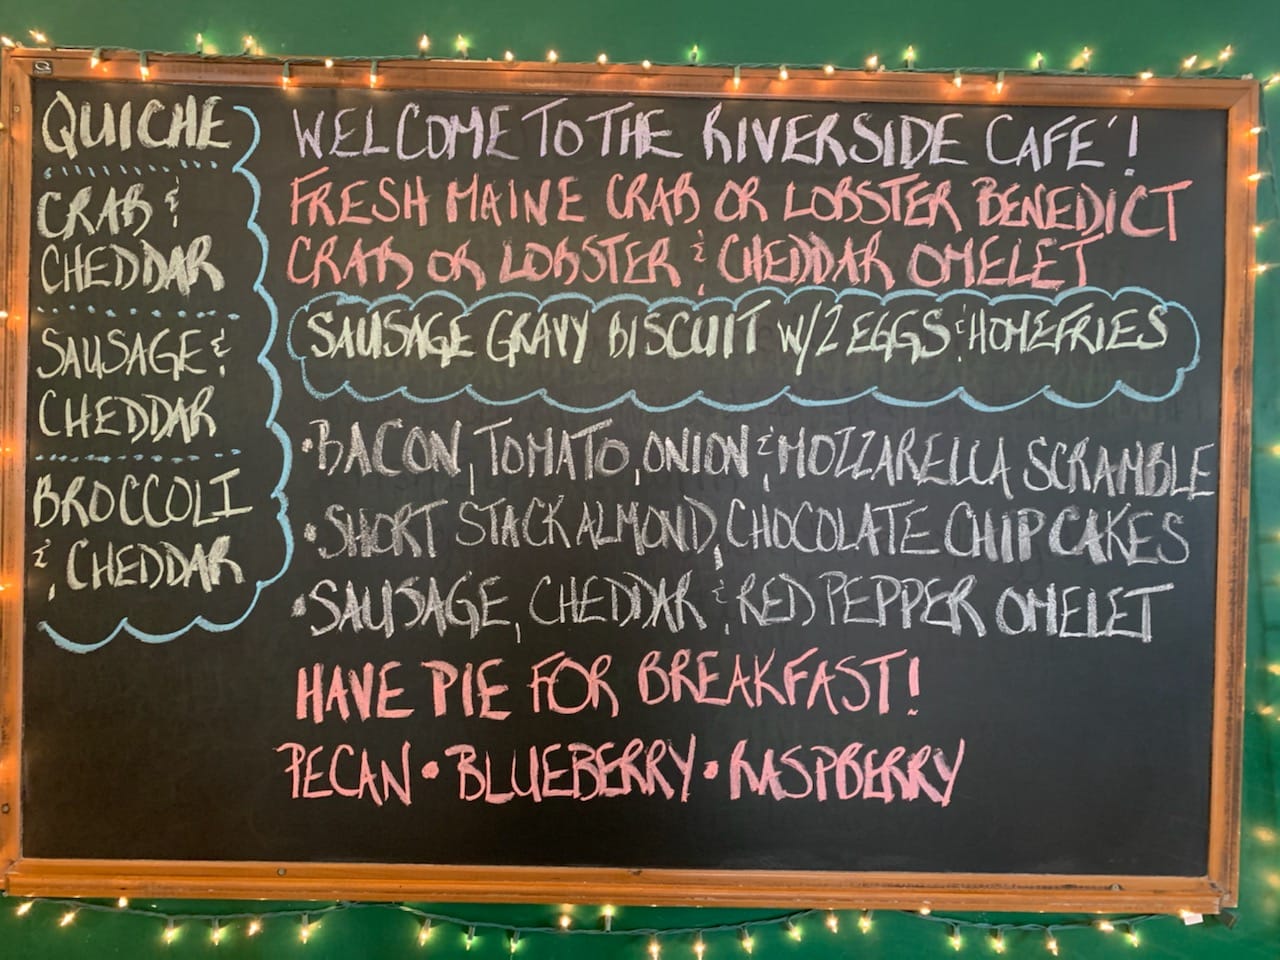 QUICHE
CRAB &
CHEDDAR
SAUSAGE &
CHEDDAR
BROCCOLI
& CHEDDAR
WELCOME TO THE RIVERSIDE CAFE'!
FRESH MAINE CRAB OR LOBSTER BENEDICT
CRAB OR LOBSTER & CHEDDAR OMELET
SAUSAGE GRAVY BISCUIT W/2 EGGS & HOMEFRIES
•BACON, TOMATO, ONION & MOZZARELLA SCRAMBLE
•SHORT STACK ALMOND, CHOCOLATE CHIP CAKES
•SAUSAGE, CHEDDAR & RED PEPPER OMELET
HAVE PIE FOR BREAKFAST!
PECAN • BLUEBERRY • RASPBERRY